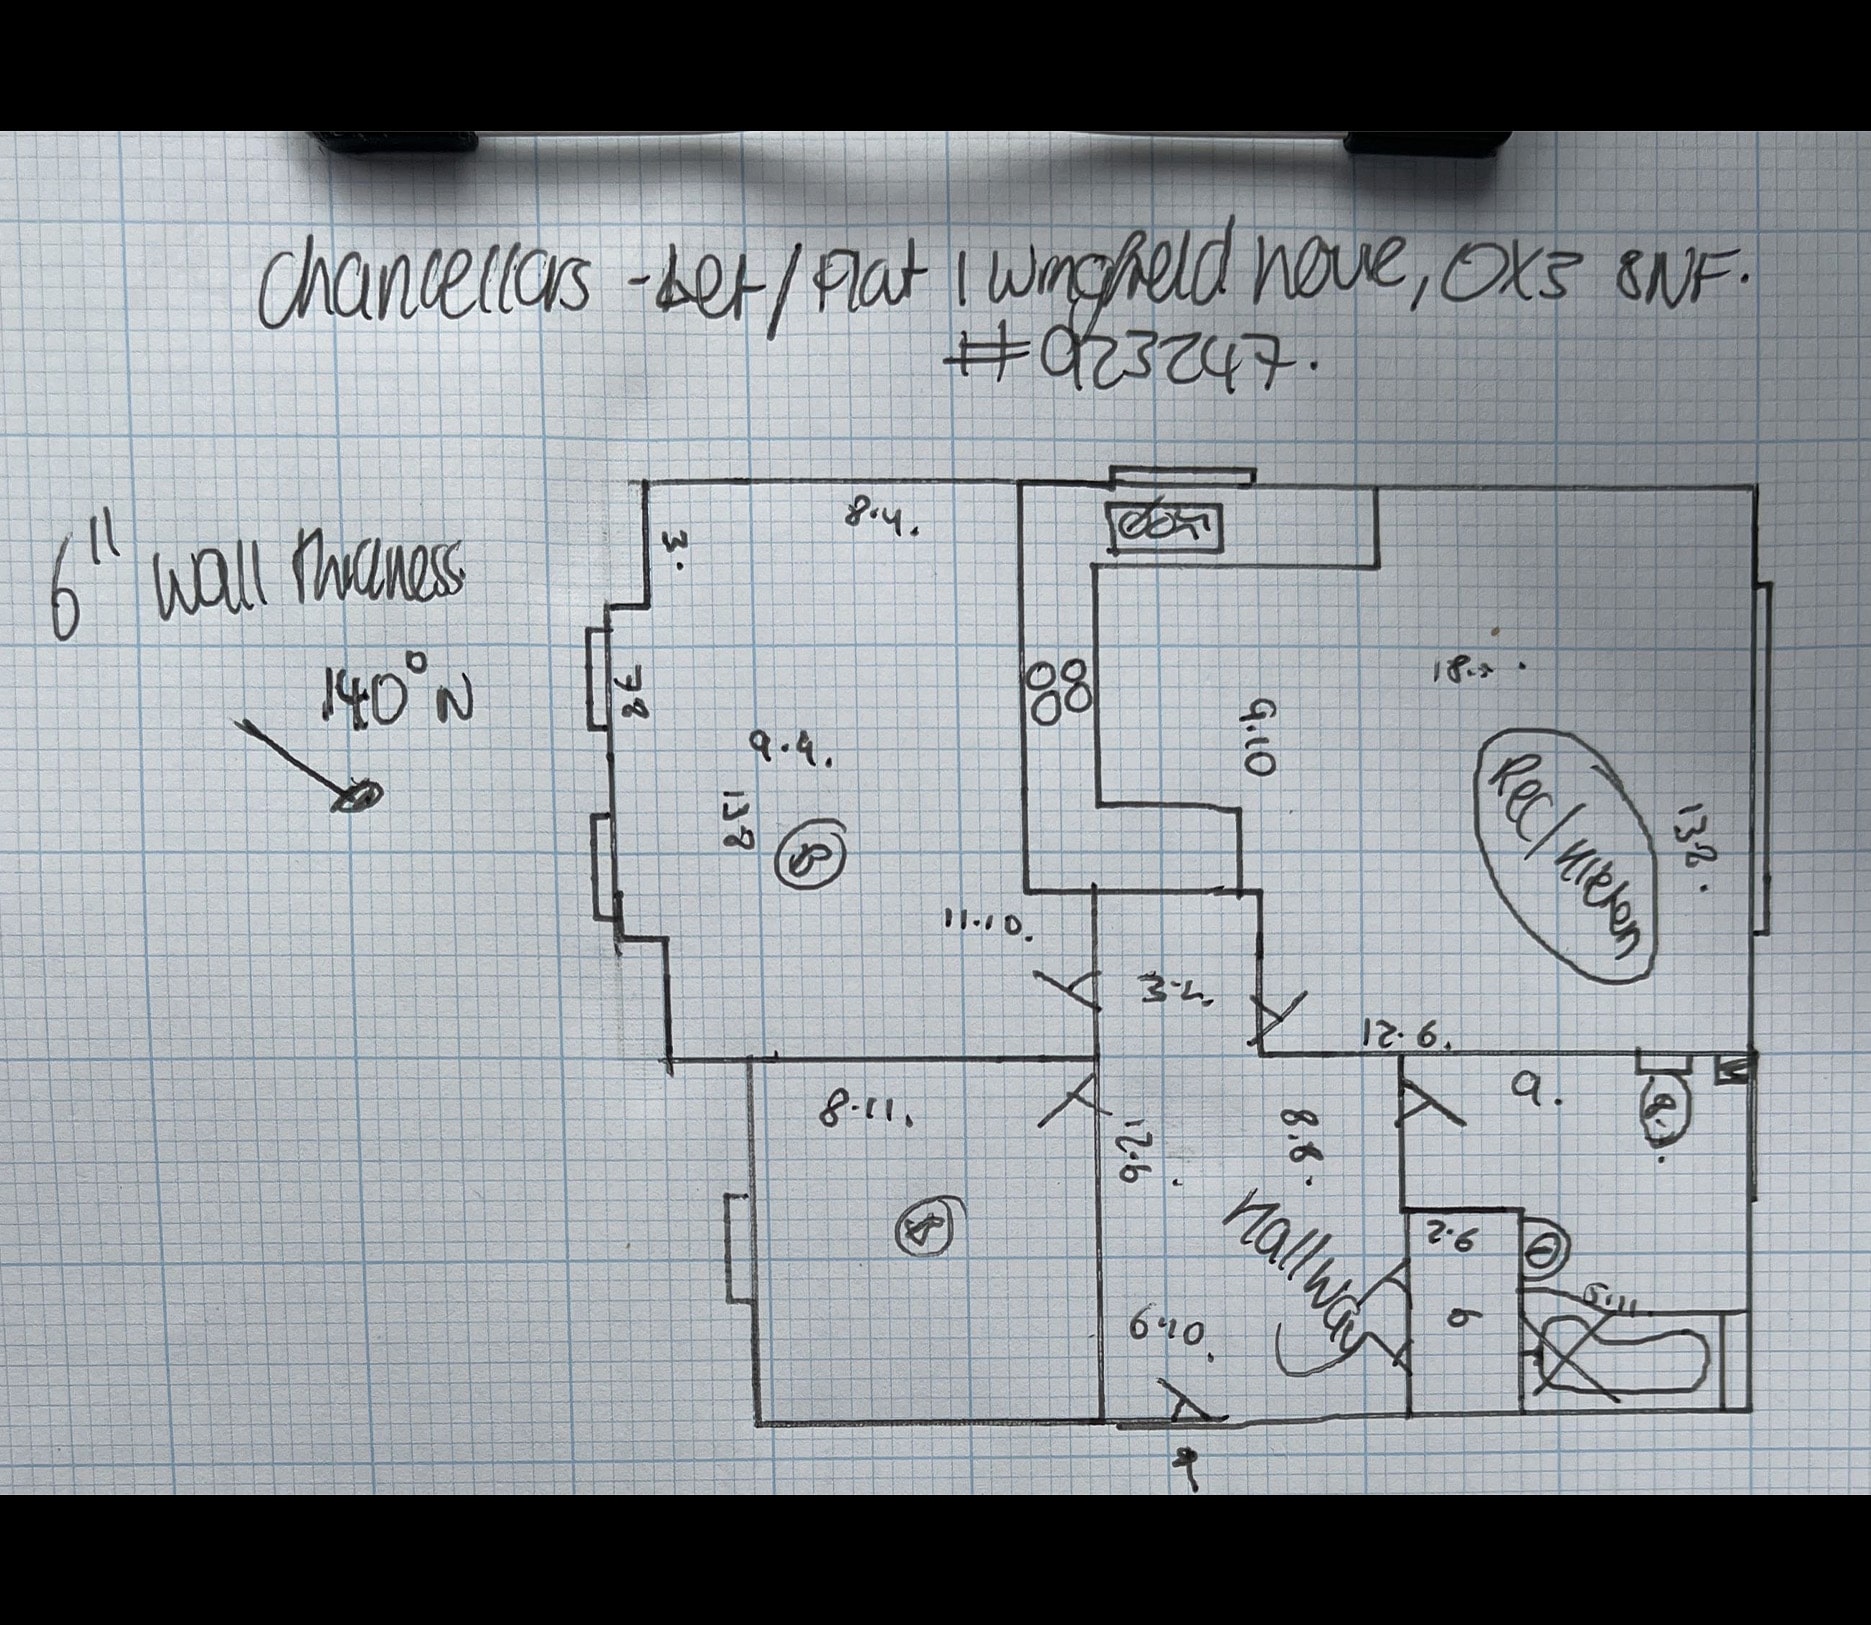 Chancellors - Let / Flat 1 Wingfield House, OX3 8NF.
#923247.
6" wall thickness
140° N
8.4.
3.
7.8
9.4.
13.8
B
11.10.
9.10
Rec/Kitchen
13.2.
3.2.
12.6.
8.11.
12.6.
8.8.
9.
8.
B
Hallway
2.6
6
5.11.
6.10.